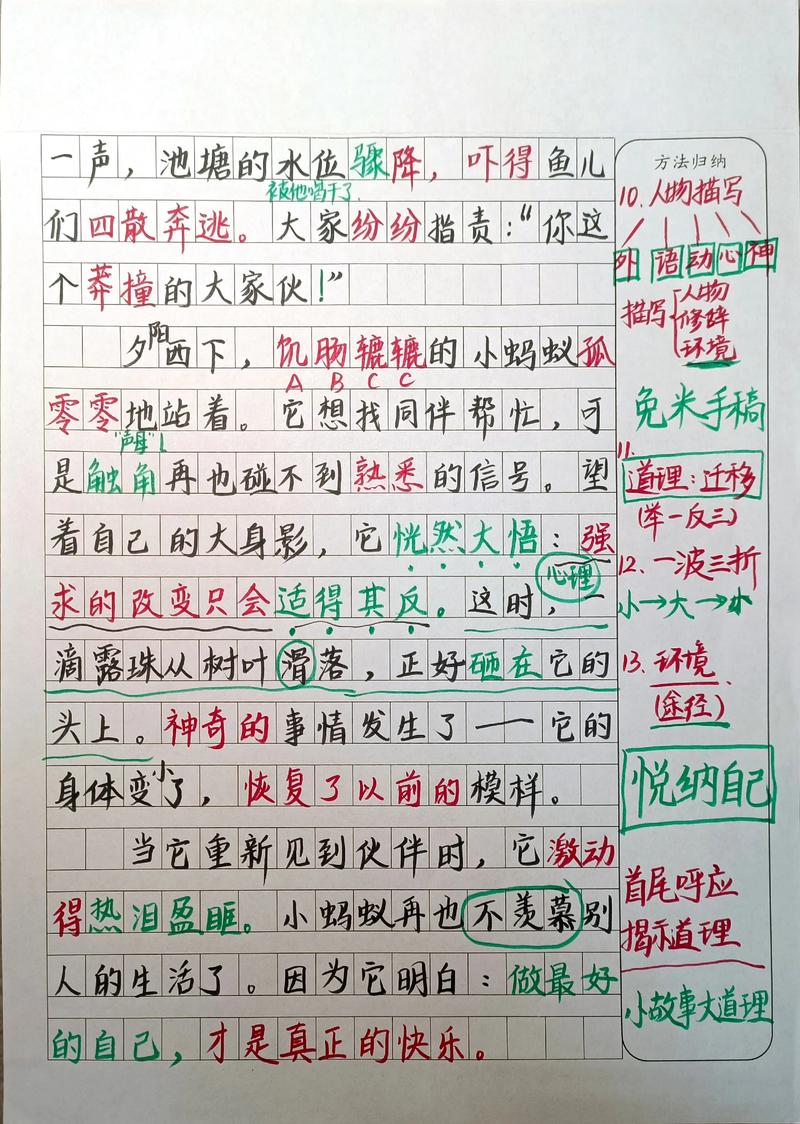 一声，池塘的水位骤降，吓得鱼儿
被他喝干了.
们四散奔逃。大家纷纷指责：“你这
个莽撞的大家伙！”
夕阳西下，饥肠辘辘的小蚂蚁孤
A B C C
零零地站着。它想找同伴帮忙，可
“声母”1
是触角再也碰不到熟悉的信号。望
着自己的大身影，它恍然大悟：强
心理
求的改变只会适得其反。这时，一
滴露珠从树叶滑落，正好砸在它的
头上。神奇的事情发生了——它的
身体变小了，恢复了以前的模样。
当它重新见到伙伴时，它激动
得热泪盈眶。小蚂蚁再也不羡慕别
人的生活了。因为它明白：做最好
的自己，才是真正的快乐。
方法归纳
10.人物描写
外 语 动 心 神
描写 人物
修辞
环境
免米手稿
11.
道理：迁移
(举一反三)
12.一波三折
小→大→小
13.环境
(途径)
悦纳自己
首尾呼应
揭示道理
小故事大道理